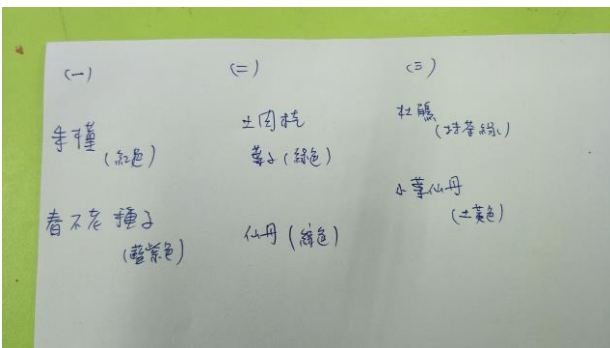 (一)
朱槿
(紅色)
春不老種子
(藍紫色)
(二)
土肉桂
葉子(綠色)
仙丹(綠色)
(三)
杜鵑
(抹茶綠)
小葉仙丹
(土黃色)